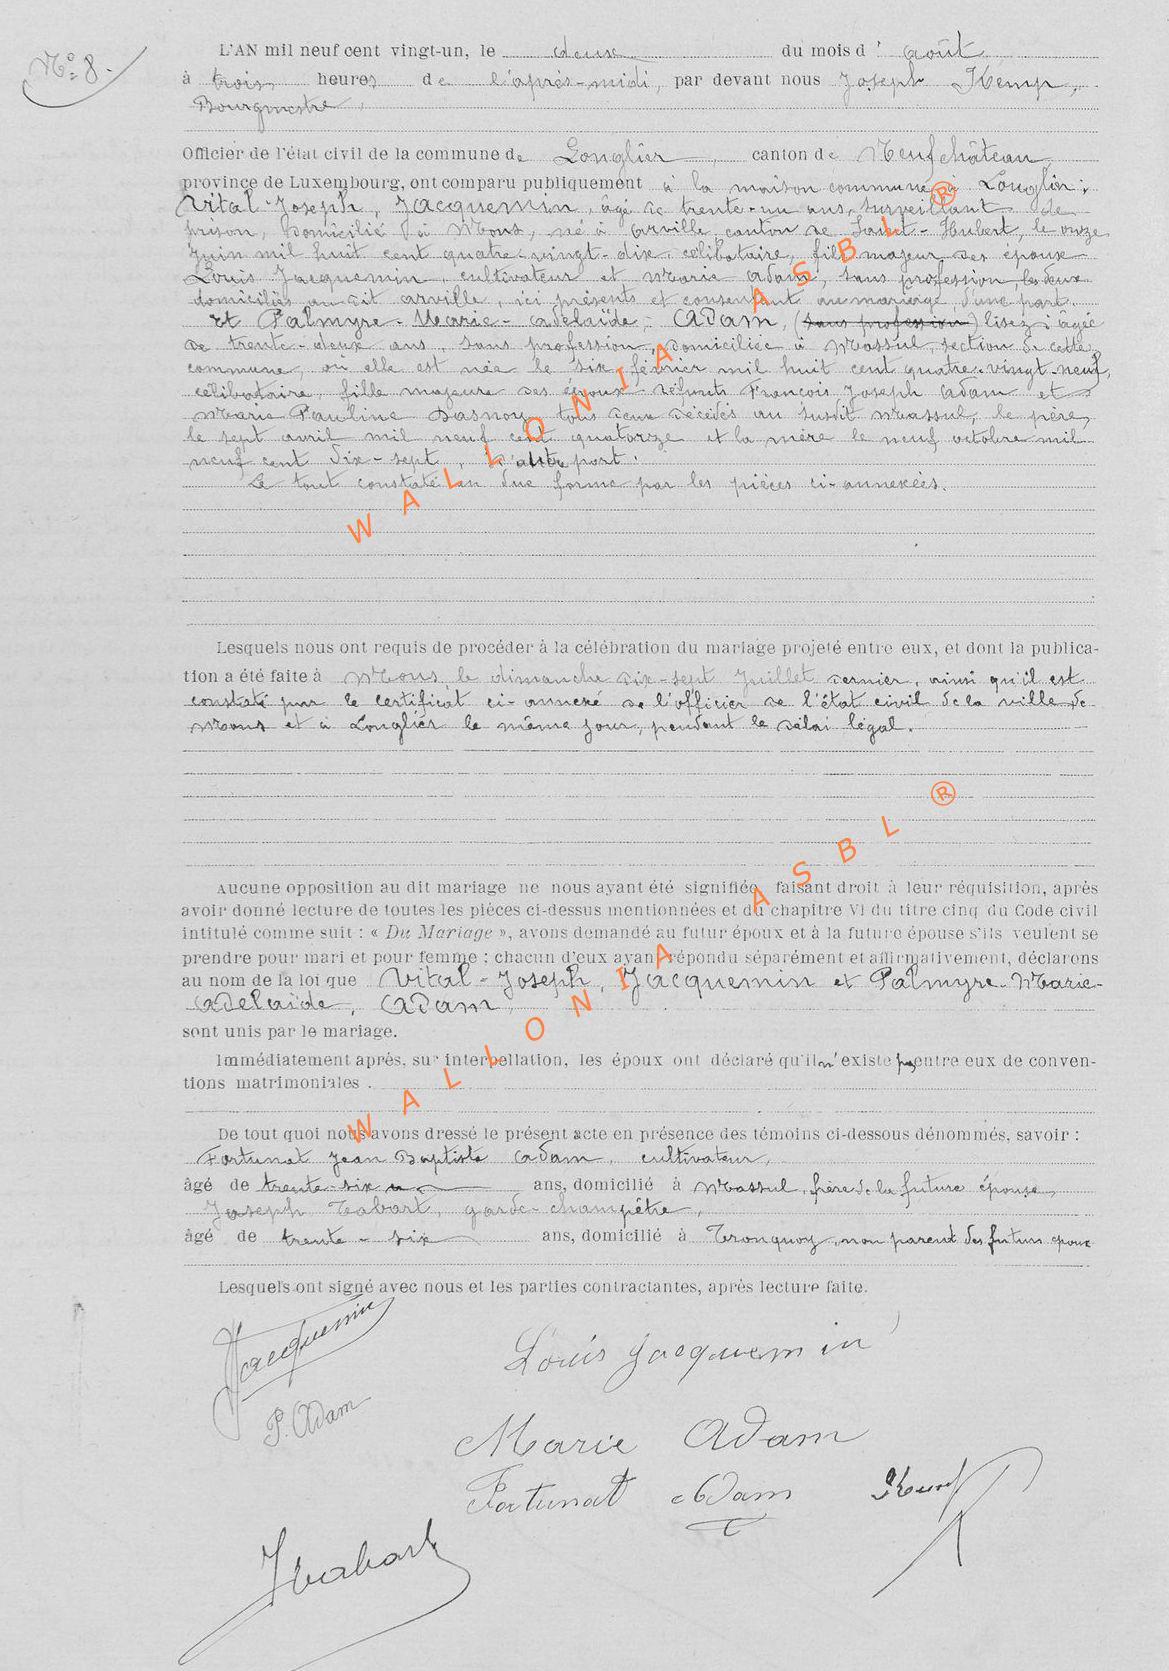 N° 8.
L'AN mil neuf cent vingt-un, le deux du mois d'août,
à trois heures de l'après-midi, par devant nous Joseph Kemp,
Bourgmestre,
Officier de l'état civil de la commune de Longlier, canton de Neufchâteau,
province de Luxembourg, ont comparu publiquement à la maison commune à Longlier:
Vital-Joseph, Jacquemin, âgé de trente-un ans, surveillant de
prison, domicilié à Mons, né à Arville, canton de Saint-Hubert, le onze
Juin mil huit cent quatre-vingt-dix, célibataire, fils majeur des époux
Louis Jacquemin, cultivateur et Marie Adam, sans profession, les deux
domiciliés au dit Arville, ici présents et consentant au mariage, d'une part.
Et Palmyre-Marie-Adelaïde, Adam, (sans profession) lisez: âgée
de trente-deux ans, sans profession, domiciliée à Massul, section de cette
commune, où elle est née le six février mil huit cent quatre-vingt-neuf,
célibataire, fille majeure des époux défunts François Joseph Adam et
Marie Pauline Dasnoy, tous deux décédés au susdit Massul, le père,
le sept avril mil neuf cent quatorze et la mère le neuf octobre mil
neuf cent dix-sept, d'autre part.
Le tout constaté en due forme par les pièces ci-annexées.
Lesquels nous ont requis de procéder à la célébration du mariage projeté entre eux, et dont la publica-
tion a été faite à Mons le dimanche dix-sept Juillet dernier, ainsi qu'il est
constaté par le certificat ci-annexé de l'officier de l'état civil de la ville de
Mons et à Longlier le même jour, pendant le délai légal.
Aucune opposition au dit mariage ne nous ayant été signifiée, faisant droit à leur réquisition, après
avoir donné lecture de toutes les pièces ci-dessus mentionnées et du chapitre VI du titre cinq du Code civil
intitulé comme suit : « Du Mariage », avons demandé au futur époux et à la future épouse s'ils veulent se
prendre pour mari et pour femme ; chacun d'eux ayant répondu séparément et affirmativement, déclarons
au nom de la loi que Vital-Joseph, Jacquemin et Palmyre-Marie-
Adelaïde, Adam,
sont unis par le mariage.
Immédiatement après, sur interpellation, les époux ont déclaré qu'il n'existe pas entre eux de conven-
tions matrimoniales.
De tout quoi nous avons dressé le présent acte en présence des témoins ci-dessous dénommés, savoir :
Fortunat Jean Baptiste Adam, cultivateur,
âgé de trente-six ans, domicilié à Massul, frère de la future épouse,
Joseph Habart, garde-champêtre,
âgé de trente-six ans, domicilié à Tronquoy, non parent des futurs époux
Lesquels ont signé avec nous et les parties contractantes, après lecture faite.
Jacquemin
Louis Jacquemin
P. Adam
Marie Adam
Fortunat Adam
Kemp
J Habart
WALLONIA ASBL ®
WALLONIA ASBL ®